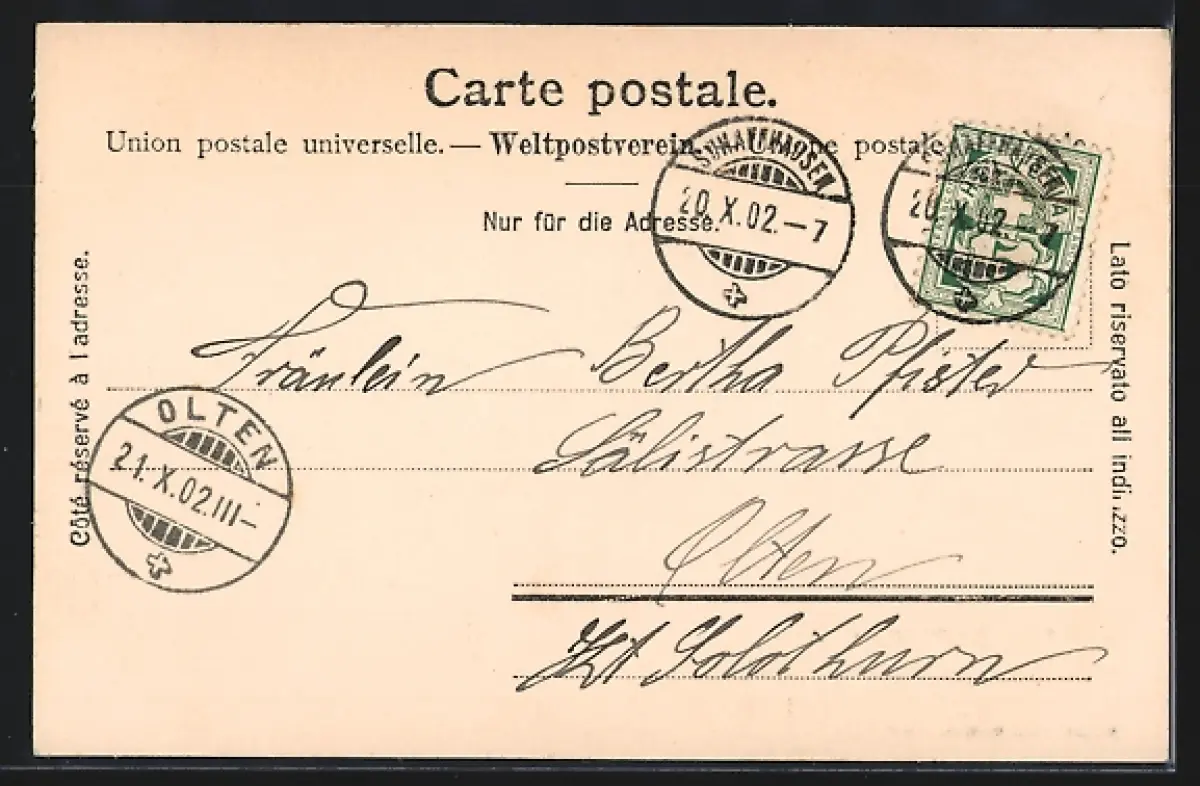 Carte postale.
Union postale universelle. — Weltpostverein. — Unione postale
Nur für die Adresse.
SCHAFFHAUSEN
20. X. 02. – 7
SCHAFFHAUSEN
20. X. 02. – 7
Côté réservé à l'adresse.
Lato riservato all indi
Fräulein Bertha Pfister
Sälistrasse
Olten
Kt Solothurn
OLTEN
21. X. 02. III –